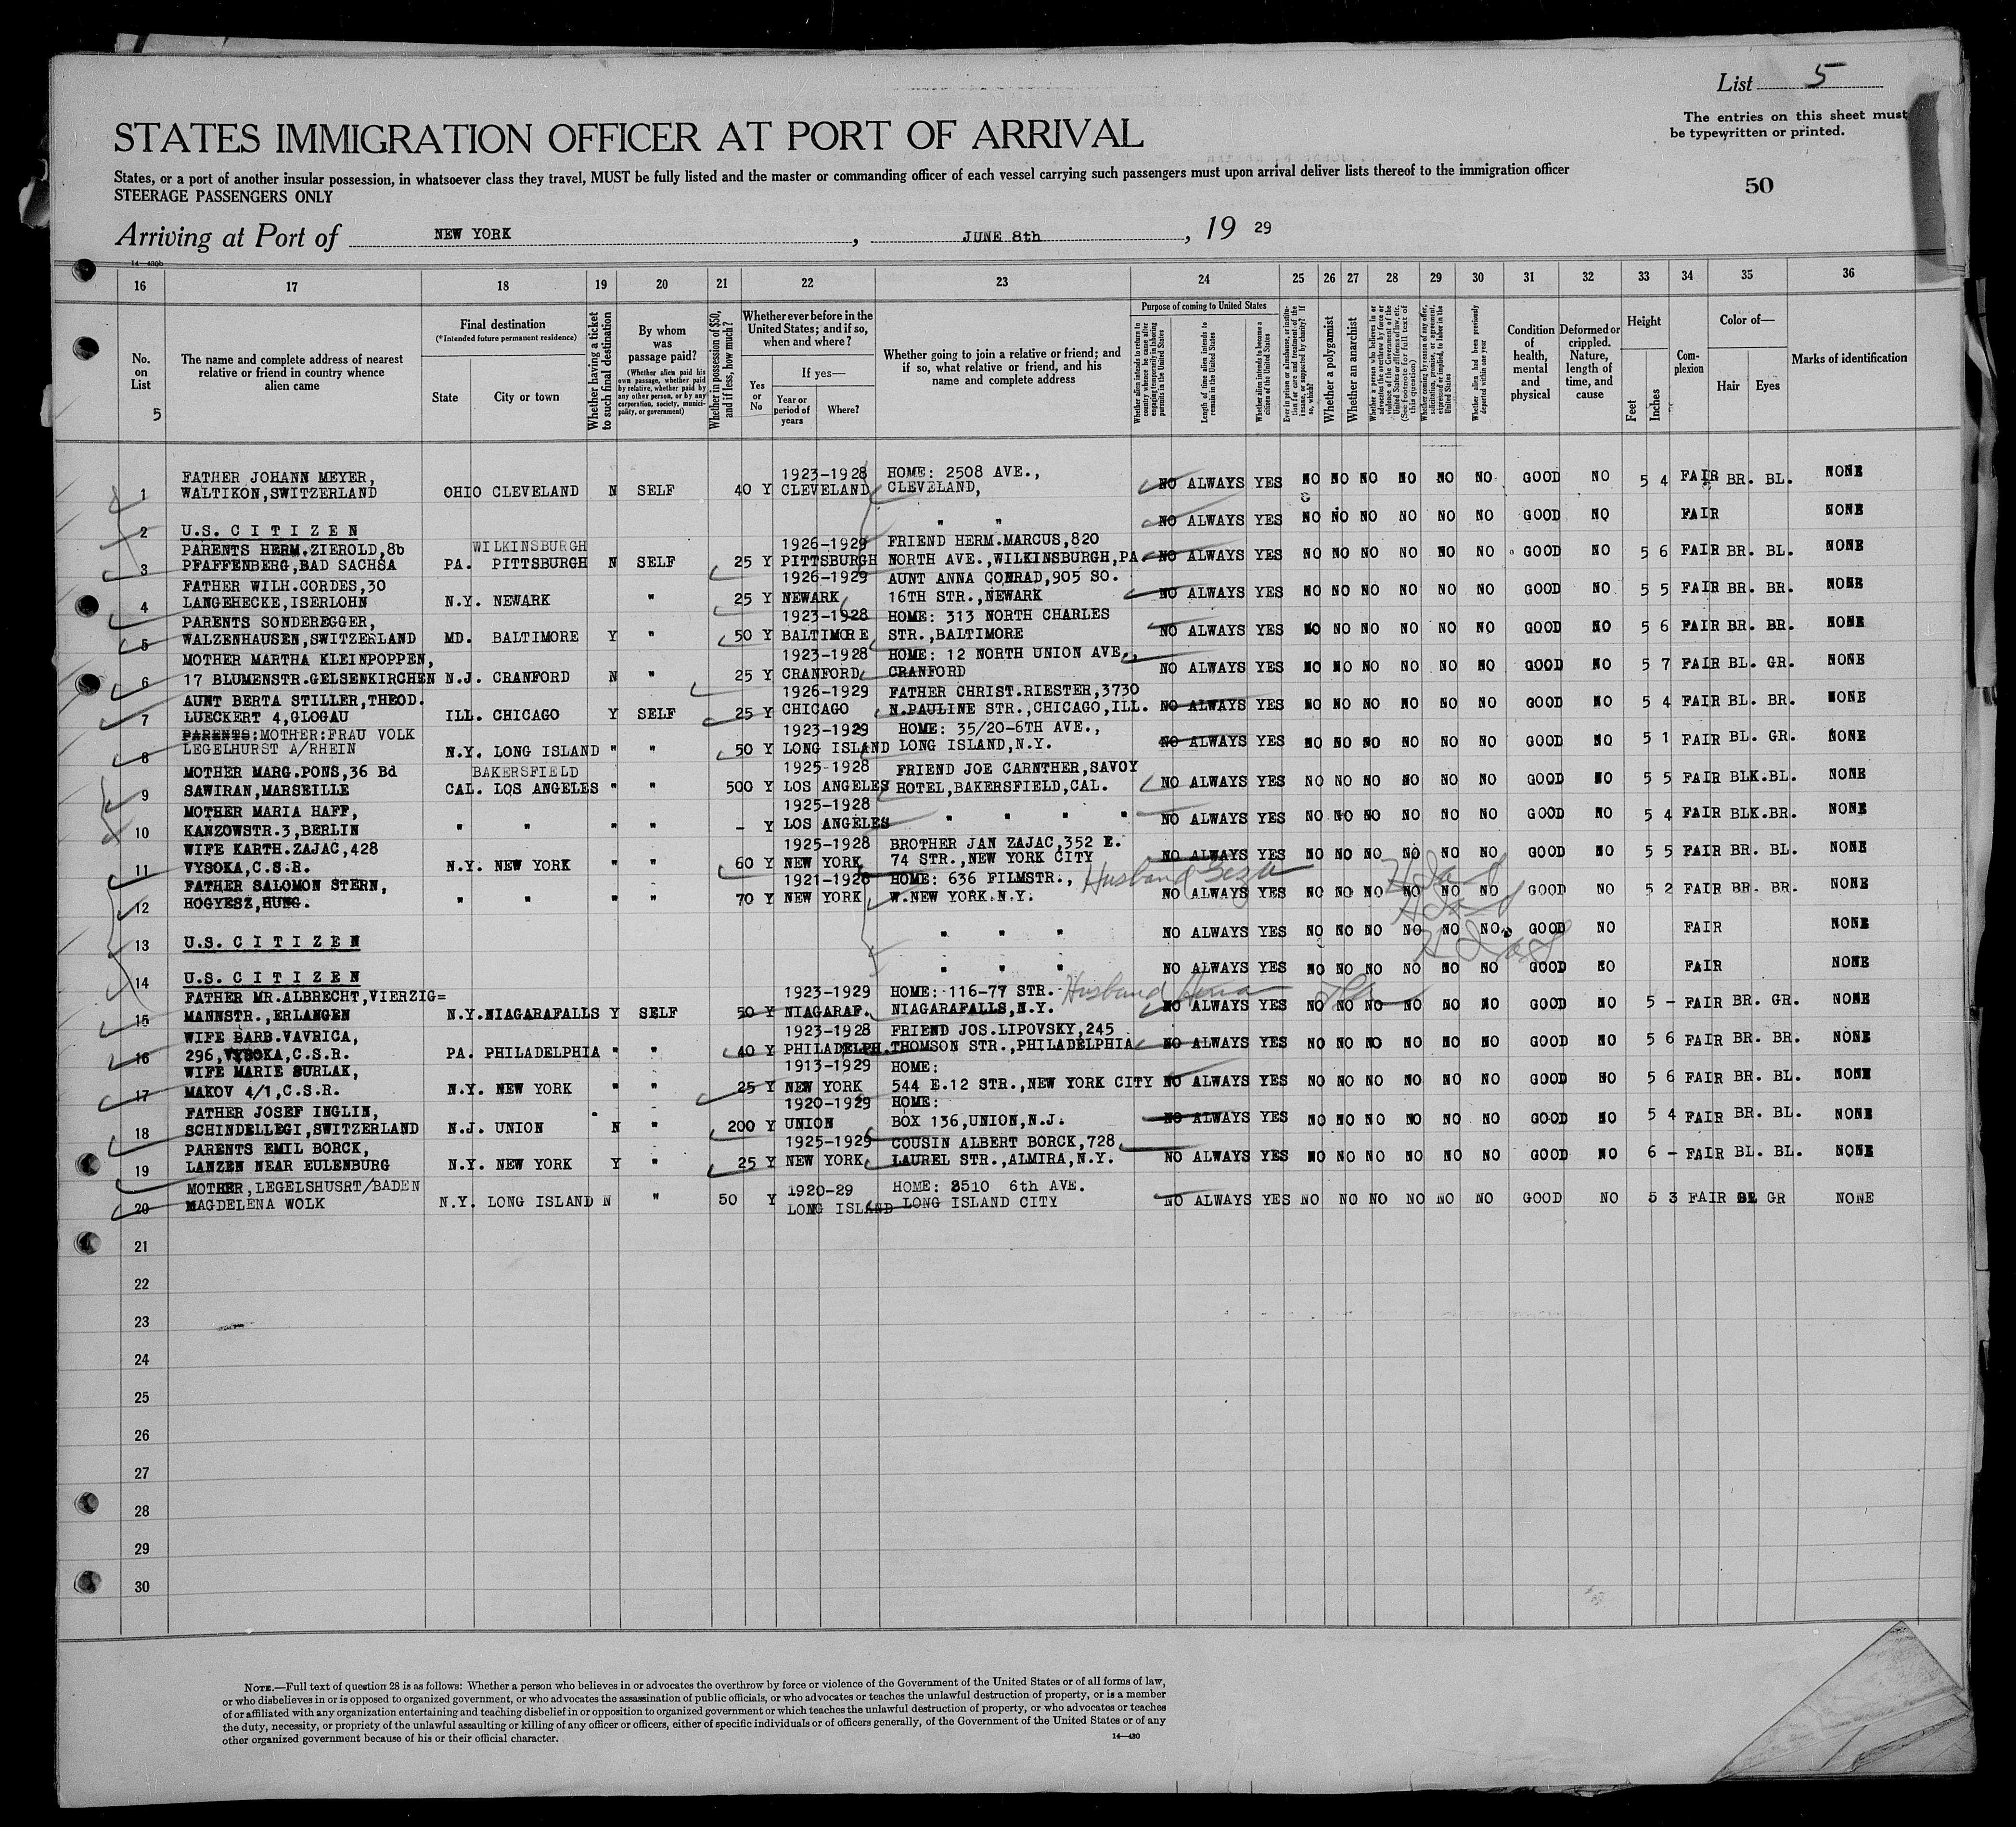 List 5
The entries on this sheet must
be typewritten or printed.
STATES IMMIGRATION OFFICER AT PORT OF ARRIVAL
States, or a port of another insular possession, in whatsoever class they travel, MUST be fully listed and the master or commanding officer of each vessel carrying such passengers must upon arrival deliver lists thereof to the immigration officer
STEERAGE PASSENGERS ONLY
50
Arriving at Port of NEW YORK, JUNE 8th, 19 29
14—430b
16 17 18 19 20 21 22 23 24 25 26 27 28 29 30 31 32 33 34 35 36
No. on List
5
The name and complete address of nearest relative or friend in country whence alien came
Final destination
(*Intended future permanent residence)
State
City or town
Whether having a ticket to such final destination
By whom was passage paid?
(Whether alien paid his own passage, whether paid by relative, whether paid by any other person, or by any corporation, society, municipality, or government)
Whether in possession of $50, and if less, how much?
Whether ever before in the United States; and if so, when and where?
Yes or No
If yes—
Year or period of years
Where?
Whether going to join a relative or friend; and if so, what relative or friend, and his name and complete address
Purpose of coming to United States
Whether alien intends to return to country whence he came after engaging temporarily in laboring pursuits in the United States
Length of time alien intends to remain in the United States
Whether alien intends to become a citizen of the United States
Ever in prison or almshouse, or institution for care and treatment of the insane, or supported by charity? If so, which?
Whether a polygamist
Whether an anarchist
Whether a person who believes in or advocates the overthrow by force or violence of the Government of the United States or all forms of law, etc. (See footnote for full text of this question)
Whether coming by reason of any offer, solicitation, promise, or agreement, expressed or implied, to labor in the United States
Whether alien had been previously deported within one year
Condition of health, mental and physical
Deformed or crippled. Nature, length of time, and cause
Height
Feet
Inches
Complexion
Color of—
Hair
Eyes
Marks of identification
FATHER JOHANN MEYER, 1923-1928 HOME: 2508 AVE.,
1 WALTIKON,SWITZERLAND OHIO CLEVELAND N SELF 40 Y CLEVELAND CLEVELAND, NO ALWAYS YES NO NO NO NO NO NO GOOD NO 5 4 FAIR BR. BL. NONE
2 U.S. C I T I Z E N " " NO ALWAYS YES NO NO NO NO NO NO GOOD NO FAIR NONE
PARENTS HERM.ZIEROLD,8b WILKINSBURGH 1926-1929 FRIEND HERM.MARCUS,820
3 PFAFFENBERG,BAD SACHSA PA. PITTSBURGH N SELF 25 Y PITTSBURGH NORTH AVE.,WILKINSBURGH,PA. NO ALWAYS YES NO NO NO NO NO NO GOOD NO 5 6 FAIR BR. BL. NONE
FATHER WILH.CORDES,30 1926-1929 AUNT ANNA CONRAD,905 SO.
4 LANGEHECKE,ISERLOHN N.Y. NEWARK " 25 Y NEWARK 16TH STR.,NEWARK NO ALWAYS YES NO NO NO NO NO NO GOOD NO 5 5 FAIR BR. BR. NONE
PARENTS SONDEREGGER, 1923-1928 HOME: 313 NORTH CHARLES
5 WALZENHAUSEN,SWITZERLAND MD. BALTIMORE Y " 50 Y BALTIMORE STR.,BALTIMORE NO ALWAYS YES NO NO NO NO NO NO GOOD NO 5 6 FAIR BR. BR. NONE
MOTHER MARTHA KLEINPOPPEN, 1923-1928 HOME: 12 NORTH UNION AVE.,
6 17 BLUMENSTR.GELSENKIRCHEN N.J. CRANFORD N " 25 Y CRANFORD CRANFORD NO ALWAYS YES NO NO NO NO NO NO GOOD NO 5 7 FAIR BL. GR. NONE
AUNT BERTA STILLER,THEOD. 1926-1929 FATHER CHRIST.RIESTER,3730
7 LUECKERT 4,GLOGAU ILL. CHICAGO Y SELF 25 Y CHICAGO N.PAULINE STR.,CHICAGO,ILL. NO ALWAYS YES NO NO NO NO NO NO GOOD NO 5 4 FAIR BL. BR. NONE
PARENTS:MOTHER:FRAU VOLK 1923-1929 HOME: 35/20-6TH AVE.,
8 LEGELHURST A/RHEIN N.Y. LONG ISLAND " " 50 Y LONG ISLAND LONG ISLAND,N.Y. NO ALWAYS YES NO NO NO NO NO NO GOOD NO 5 1 FAIR BL. GR. NONE
MOTHER MARG.PONS,36 Bd BAKERSFIELD 1925-1928 FRIEND JOE CARNTHER,SAVOY
9 SAWIRAN,MARSEILLE CAL. LOS ANGELES " " 500 Y LOS ANGELES HOTEL,BAKERSFIELD,CAL. NO ALWAYS YES NO NO NO NO NO NO GOOD NO 5 5 FAIR BLK.BL. NONE
MOTHER MARIA HAFF, 1925-1928
10 KANZOWSTR.3,BERLIN " " " " - Y LOS ANGELES " " " " NO ALWAYS YES NO NO NO NO NO NO GOOD NO 5 4 FAIR BLK.BR. NONE
WIFE KARTH.ZAJAC,428 1925-1928 BROTHER JAN ZAJAC,352 E.
11 VYSOKA,C.S.R. N.Y. NEW YORK " " 60 Y NEW YORK 74 STR.,NEW YORK CITY NO ALWAYS YES NO NO NO NO NO NO GOOD NO 5 5 FAIR BR. BL. NONE
FATHER SALOMON STERN, 1921-1928 HOME: 636 FILMSTR., Husband Geza
12 HOGYESZ,HUNG. " " " " 70 Y NEW YORK W.NEW YORK.N.Y. NO ALWAYS YES NO NO NO NO NO NO GOOD NO 5 2 FAIR BR. BR. NONE
13 U.S. C I T I Z E N " " " NO ALWAYS YES NO NO NO NO NO NO GOOD NO FAIR NONE
14 U.S. C I T I Z E N " " " NO ALWAYS YES NO NO NO NO NO NO GOOD NO FAIR NONE
FATHER MR.ALBRECHT,VIERZIG= 1923-1929 HOME: 116-77 STR. Husband
15 MANNSTR.,ERLANGEN N.Y.NIAGARAFALLS Y SELF 50 Y NIAGARAF. NIAGARAFALLS,N.Y. NO ALWAYS YES NO NO NO NO NO NO GOOD NO 5 - FAIR BR. GR. NONE
WIFE BARB.VAVRICA, 1923-1928 FRIEND JOS.LIPOVSKY,245
16 296,VYSOKA,C.S.R. PA. PHILADELPHIA " " 40 Y PHILADELPH. THOMSON STR.,PHILADELPHIA NO ALWAYS YES NO NO NO NO NO NO GOOD NO 5 6 FAIR BR. BR. NONE
WIFE MARIE SURLAK, 1913-1929 HOME:
17 MAKOV 4/1,C.S.R. N.Y. NEW YORK " " 25 Y NEW YORK 544 E.12 STR.,NEW YORK CITY NO ALWAYS YES NO NO NO NO NO NO GOOD NO 5 6 FAIR BR. BL. NONE
FATHER JOSEF INGLIN, 1920-1929 HOME:
18 SCHINDELLEGI,SWITZERLAND N.J. UNION N " 200 Y UNION BOX 136,UNION,N.J. NO ALWAYS YES NO NO NO NO NO NO GOOD NO 5 4 FAIR BR. BL. NONE
PARENTS EMIL BORCK, 1925-1929 COUSIN ALBERT BORCK,728
19 LANZEN NEAR EULENBURG N.Y. NEW YORK Y " 25 Y NEW YORK LAUREL STR.,ALMIRA,N.Y. NO ALWAYS YES NO NO NO NO NO NO GOOD NO 6 - FAIR BL. BL. NONE
MOTHER,LEGELSHUSRT/BADEN 1920-29 HOME: 3510 6th AVE.
20 MAGDELENA WOLK N.Y. LONG ISLAND N " 50 Y LONG ISLAND LONG ISLAND CITY NO ALWAYS YES NO NO NO NO NO NO GOOD NO 5 3 FAIR BL GR NONE
21
22
23
24
25
26
27
28
29
30
NOTE.—Full text of question 28 is as follows: Whether a person who believes in or advocates the overthrow by force or violence of the Government of the United States or of all forms of law,
or who disbelieves in or is opposed to organized government, or who advocates the assassination of public officials, or who advocates or teaches the unlawful destruction of property, or is a member
of or affiliated with any organization entertaining and teaching disbelief in or opposition to organized government or which teaches the unlawful destruction of property, or who advocates or teaches
the duty, necessity, or propriety of the unlawful assaulting or killing of any officer or officers, either of specific individuals or of officers generally, of the Government of the United States or of any
other organized government because of his or their official character.
14—430